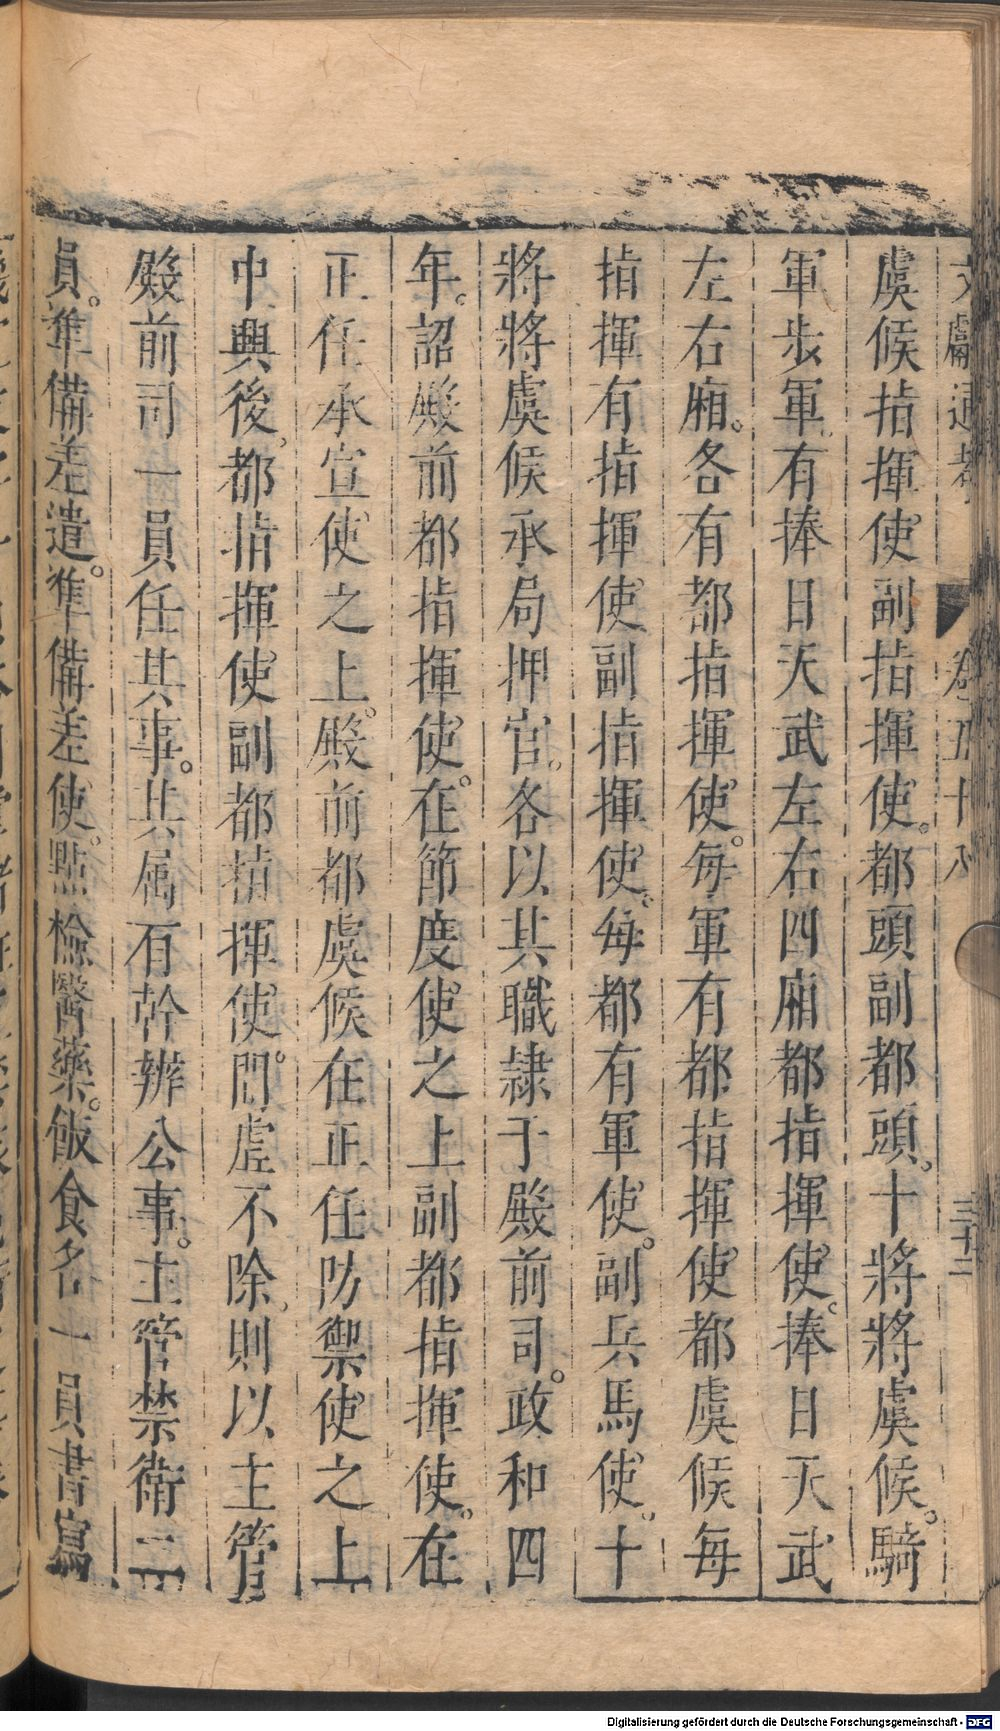 文獻通考 卷五十八 三十二
虞候指揮使副指揮使。都頭副都頭。十將將虞候。騎
軍步軍。有捧日天武左右四廂都指揮使。捧日天武
左右廂。各有都指揮使。每軍有都指揮使都虞候每
指揮有指揮使副指揮使。每都有軍使。副兵馬使。十
將將虞候承局押官。各以其職隷于殿前司。政和四
年。詔殿前都指揮使。在節度使之上副都指揮使。在
正任承宣使之上。殿前都虞候在正任防禦使之上
中興後。都指揮使副都指揮使。問虛不除。則以主管
殿前司一員任其事。其属有幹辨公事。主管禁衛二
員。準備差遣。準備差使。點檢醫藥。飯食名一員書寫
Digitalisierung gefördert durch die Deutsche Forschungsgemeinschaft - DFG